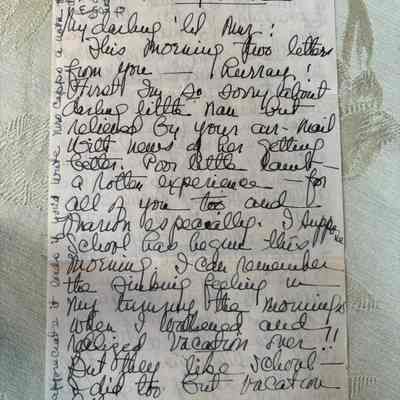 My darling 'lil Muz!
This morning two letters
from you — Hurray!
First I'm so sorry about
darling little Nan but
relieved by your air-mail
with news of her getting
better. Poor little lamb —
a rotten experience — for
all of you too and
Marion especially. I suppose
school has begun this
morning. I can remember
the sinking feeling in
my tummy the mornings
when I wakened and
realized vacation over!!
But they like school —
I did too but vacation
appreciate it if you'd wrote